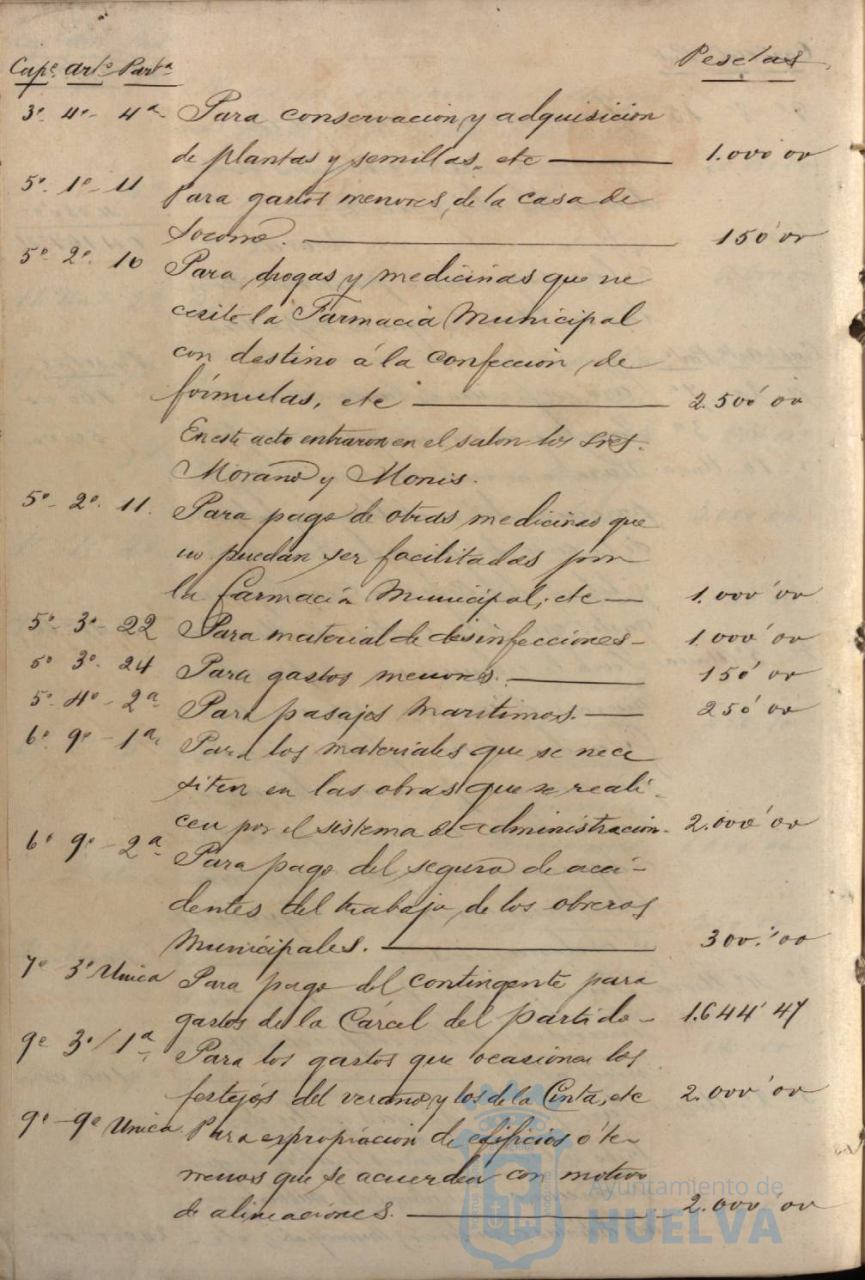 Capº. artº. Partª. Pesetas.
3º. 4º. 4ª. Para conservacion y adquisicion
de plantas y semillas, etc 1.000'00
5º. 1º. 11 Para gastos menores, de la casa de
Socorro. 150'00
5º. 2º. 10 Para drogas y medicinas que ne
cesite la Farmacia Municipal
con destino á la confeccion, de
fórmulas, etc 2.500'00
En este acto entraron en el salon los Sres.
Morano y Monis.
5º. 2º. 11. Para pago de otras medicinas que
no puedan ser facilitadas por
la Farmacia Municipal, etc 1.000'00
5º. 3º. 22 Para material de desinfecciones 1.000'00
5º 3º. 24 Para gastos menores. 150'00
5º. 4º. 2ª Para pasajes maritimos. 250'00
6º. 9º. 1ª Para los materiales que se nece
siten en las obras que se reali-
cen por el sistema de administracion. 2.000'00
6º. 9º. 2ª Para pago del seguro de acci-
dentes del trabajo, de los obreros
Municipales. 300'00
7º 3º Unica Para pago del contingente para
gastos de la Cárcel del partido 1.644'47
9º 3º/1ª Para los gastos que ocasionen los
festejos del verano y los de la Cinta, etc 2.000'00
9º-9º Unica Para espropiacion de edificios ó te-
rrenos que se acuerden con motivo
de alineaciones. 2.000'00
Ayuntamiento de
HUELVA